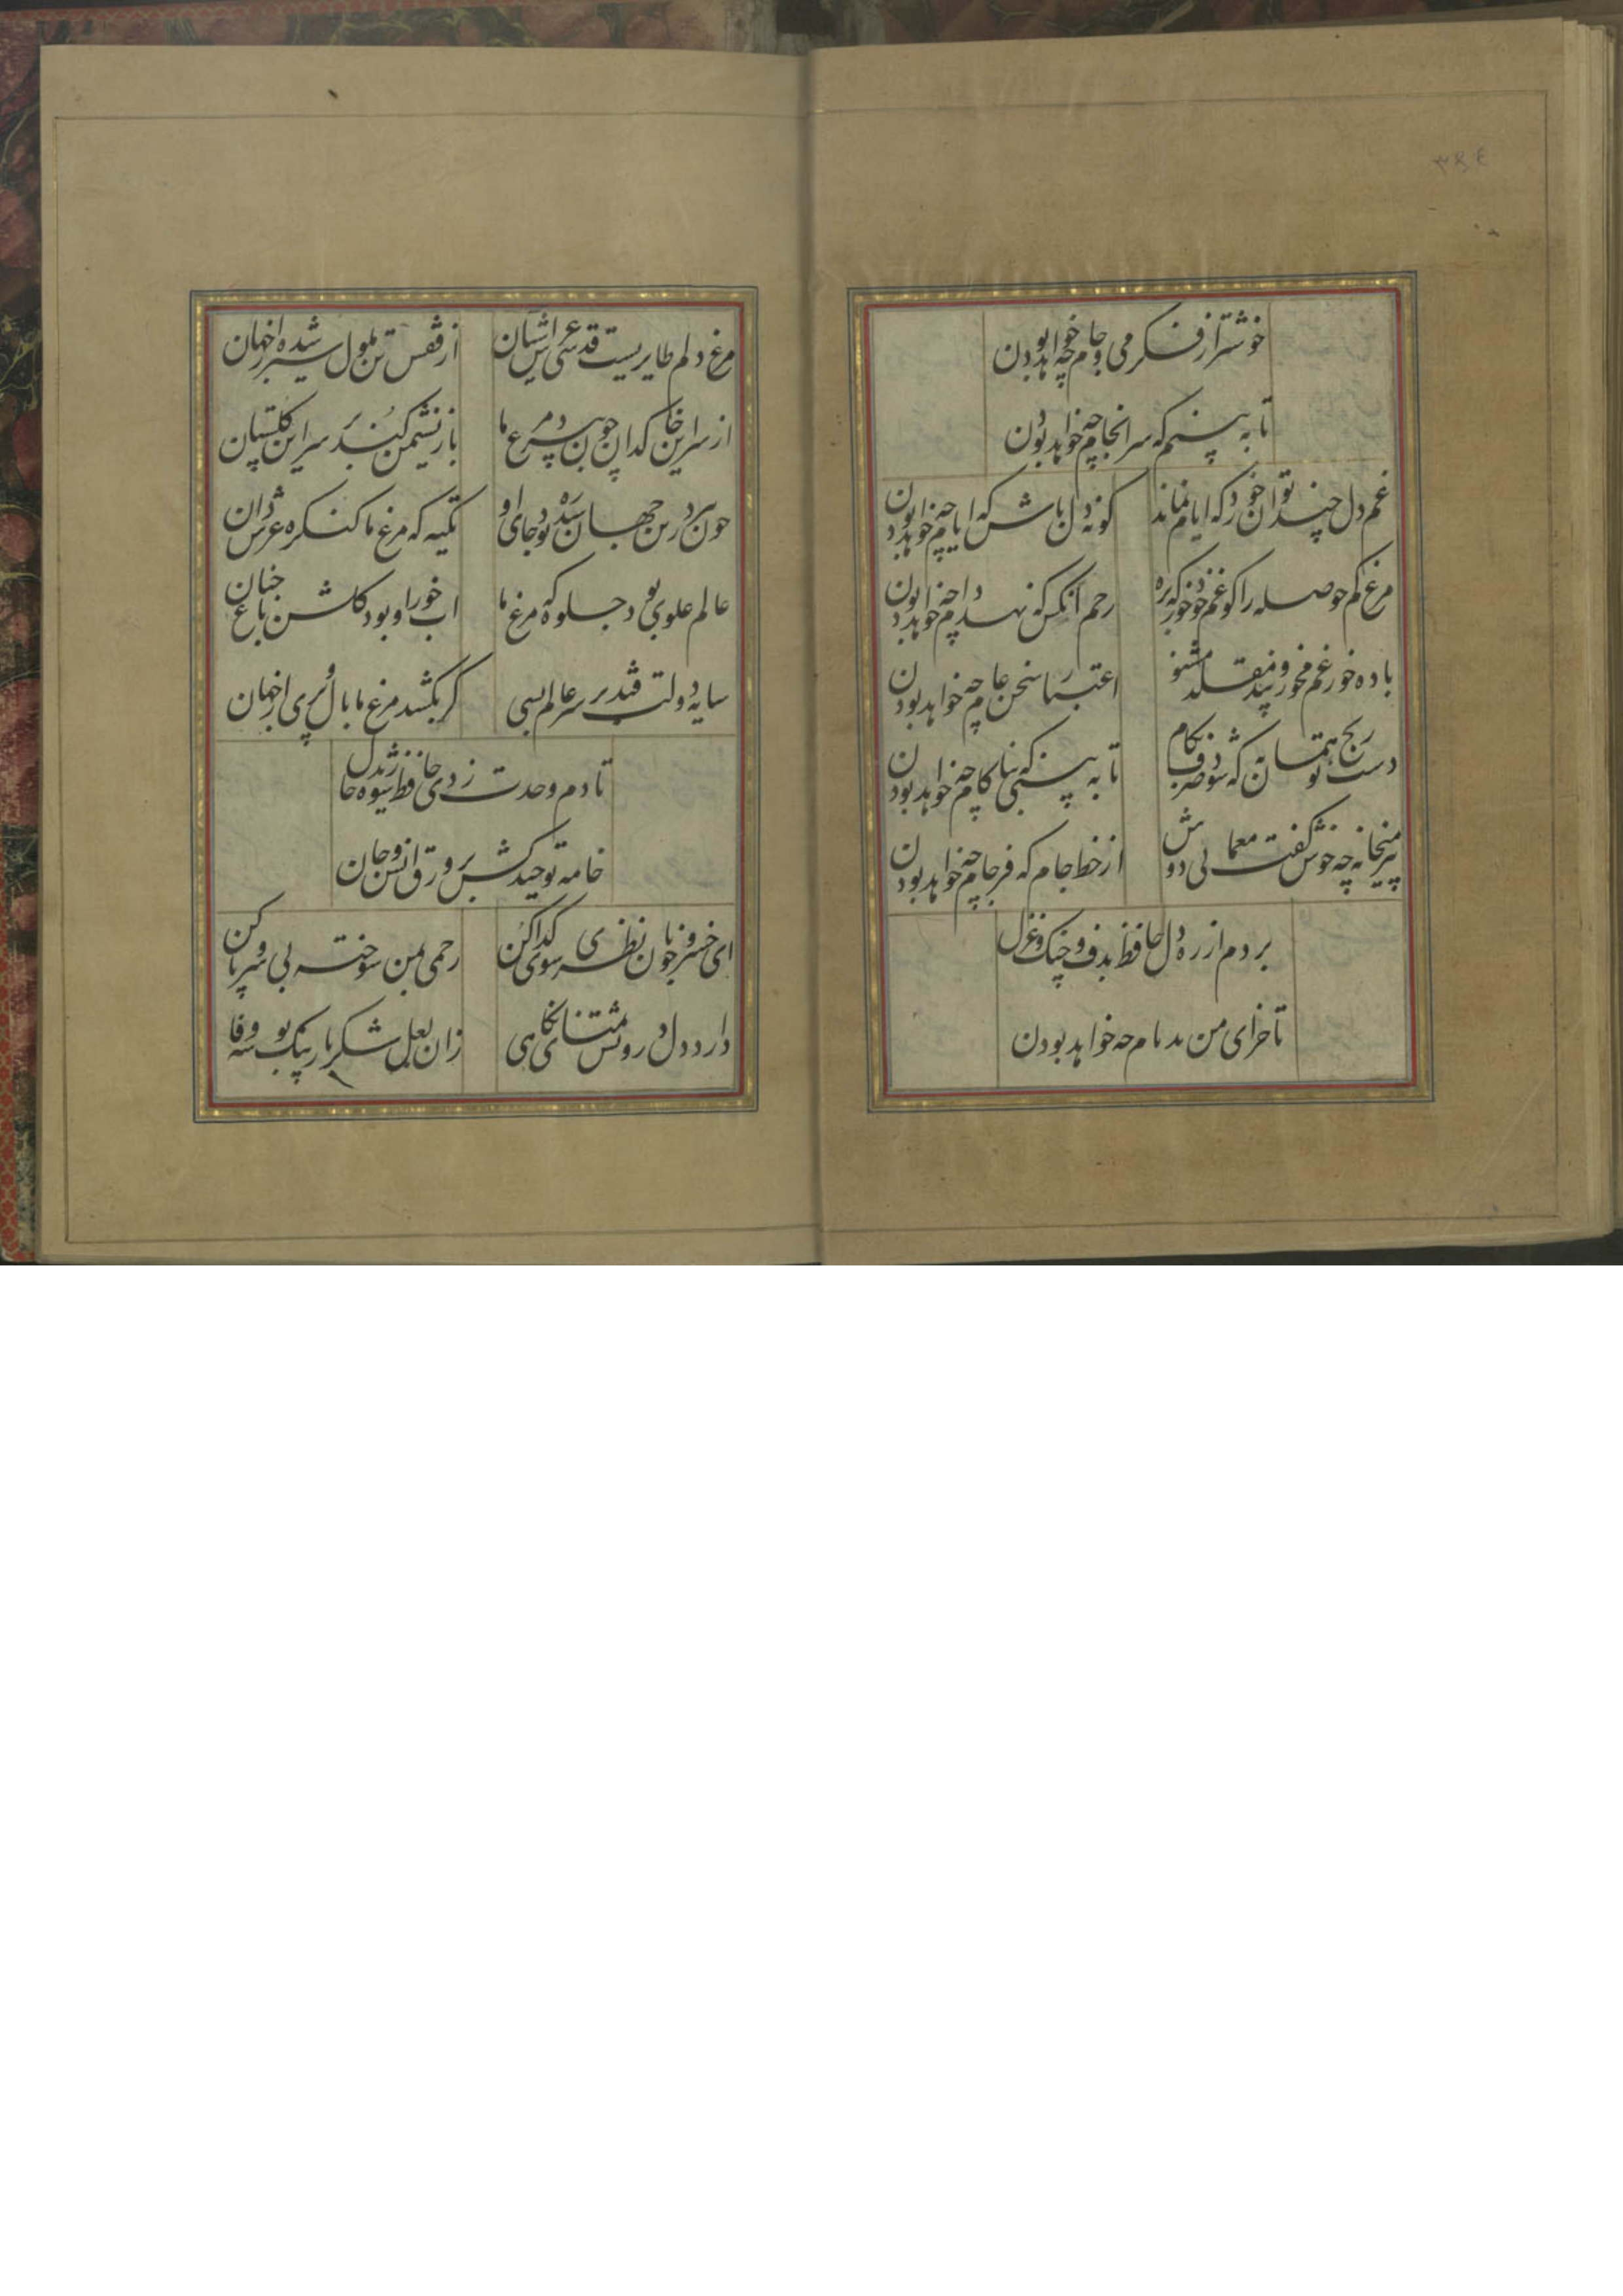 ۳۸٤
خوشتر از فکر می و جام چه خواهد بودن
تا به بینم که سرانجام چه خواهد بودن
غم دل چند توان خورد که ایام نماند
کو نه دل باش نه ایام چه خواهد بودن
مرغ کم حوصله را کو غم خود خور که برو
رحم انکس که نهد دام چه خواهد بودن
باده خور غم مخور و پند مقلد مشنو
اعتبار سخن عام چه خواهد بودن
دست رنج تو همان به که شود صرف بکام
تا به بینی که بنا کام چه خواهد بودن
پیر میخانه چه خوش گفت معمایی دوش
از خط جام که فرجام چه خواهد بودن
بردم از ره دل حافظ بدف و چنک و غزل
تا جزای من بدنام چه خواهد بودن
مرغ دلم طایریست قدسی عرش اشیان
از قفس تن ملول سیر شده از جهان
از سر این خاکدان چون بپرد مرغ ما
باز نشیمن کند بر سر این کلستان
چون بپرد زین جهان سدره بود جای او
تکیه که مرغ ما کنکره عرش دان
عالم علوی بود جلوه که مرغ ما
ابخور او بود کلشن باغ جنان
سایه دولت فتد بر سر عالم بسی
کر بکشد مرغ ما بال و پری از جهان
تا دم وحدت زدی حافظ شوریده حال
خامه توحید کش بر ورق انس و جان
ای خسرو خوبان نظری سوی کدا کن
رحمی بمن سوخته بی سر و پا کن
دارد دل درویش تمنای نکاهی
زان لعل شکربار یک بوسه وفا